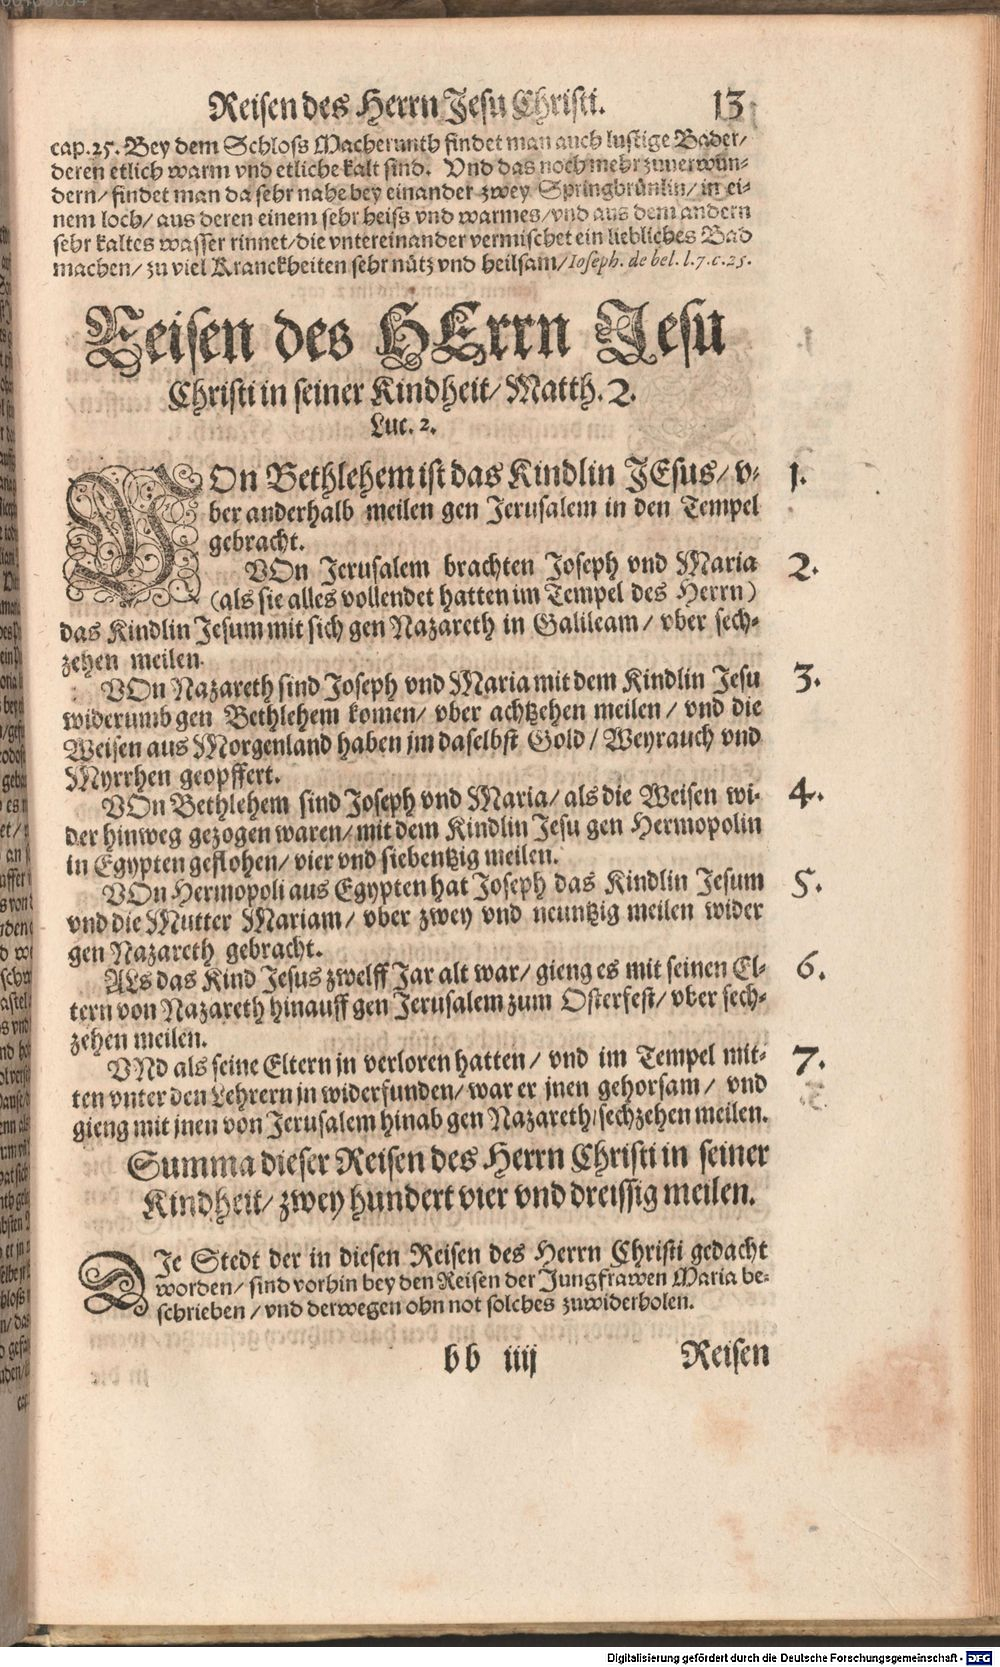 Reisen des Herrn Jesu Christi. 13
cap. 25. Bey dem Schloß Macherunth findet man auch lustige Bäder/
deren etlich warm vnd etliche kalt sind. Vnd das noch mehr zuuerwün-
dern/ findet man da sehr nahe bey einander zwey Springbrünlin/ in ei-
nem loch/ aus deren einem sehr heiss vnd warmes/ vnd aus dem andern
sehr kaltes wasser rinnet/ die vntereinander vermischet ein liebliches Bad
machen/ zu viel Kranckheiten sehr nütz vnd heilsam/ Ioseph. de bel. l. 7. c. 25.
Reisen des HErrn Jesu
Christi in seiner Kindheit/ Matth. 2.
Luc. 2.
VOn Bethlehem ist das Kindlin JEsus/ v- 1.
ber anderhalb meilen gen Jerusalem in den Tempel
gebracht.
VOn Jerusalem brachten Joseph vnd Maria 2.
(als sie alles vollendet hatten im Tempel des Herrn)
das Kindlin Jesum mit sich gen Nazareth in Galileam/ vber sech-
zehen meilen.
VOn Nazareth sind Joseph vnd Maria mit dem Kindlin Jesu 3.
widerumb gen Bethlehem komen/ vber achtzehen meilen/ vnd die
Weisen aus Morgenland haben jm daselbst Gold/ Weyrauch vnd
Myrrhen geopffert.
VOn Bethlehem sind Joseph vnd Maria/ als die Weisen wi- 4.
der hinweg gezogen waren/ mit dem Kindlin Jesu gen Hermopolin
in Egypten geflohen/ vier vnd siebentzig meilen.
VOn Hermopoli aus Egypten hat Joseph das Kindlin Jesum 5.
vnd die Mutter Mariam/ vber zwey vnd neuntzig meilen wider
gen Nazareth gebracht.
ALs das Kind Jesus zwelff Jar alt war/ gieng es mit seinen El- 6.
tern von Nazareth hinauff gen Jerusalem zum Osterfest/ vber sech-
zehen meilen.
VNd als seine Eltern jn verloren hatten/ vnd im Tempel mit- 7.
ten vnter den Lehrern jn widerfunden/ war er jnen gehorsam/ vnd
gieng mit jnen von Jerusalem hinab gen Nazareth/ sechzehen meilen.
Summa dieser Reisen des Herrn Christi in seiner
Kindheit/ zwey hundert vier vnd dreissig meilen.
DJe Stedt der in diesen Reisen des Herrn Christi gedacht
worden/ sind vorhin bey den Reisen der Jungfrawen Maria be-
schrieben/ vnd derwegen ohn not solches zuwiderholen.
bb iiij Reisen
Digitalisierung gefördert durch die Deutsche Forschungsgemeinschaft - DFG